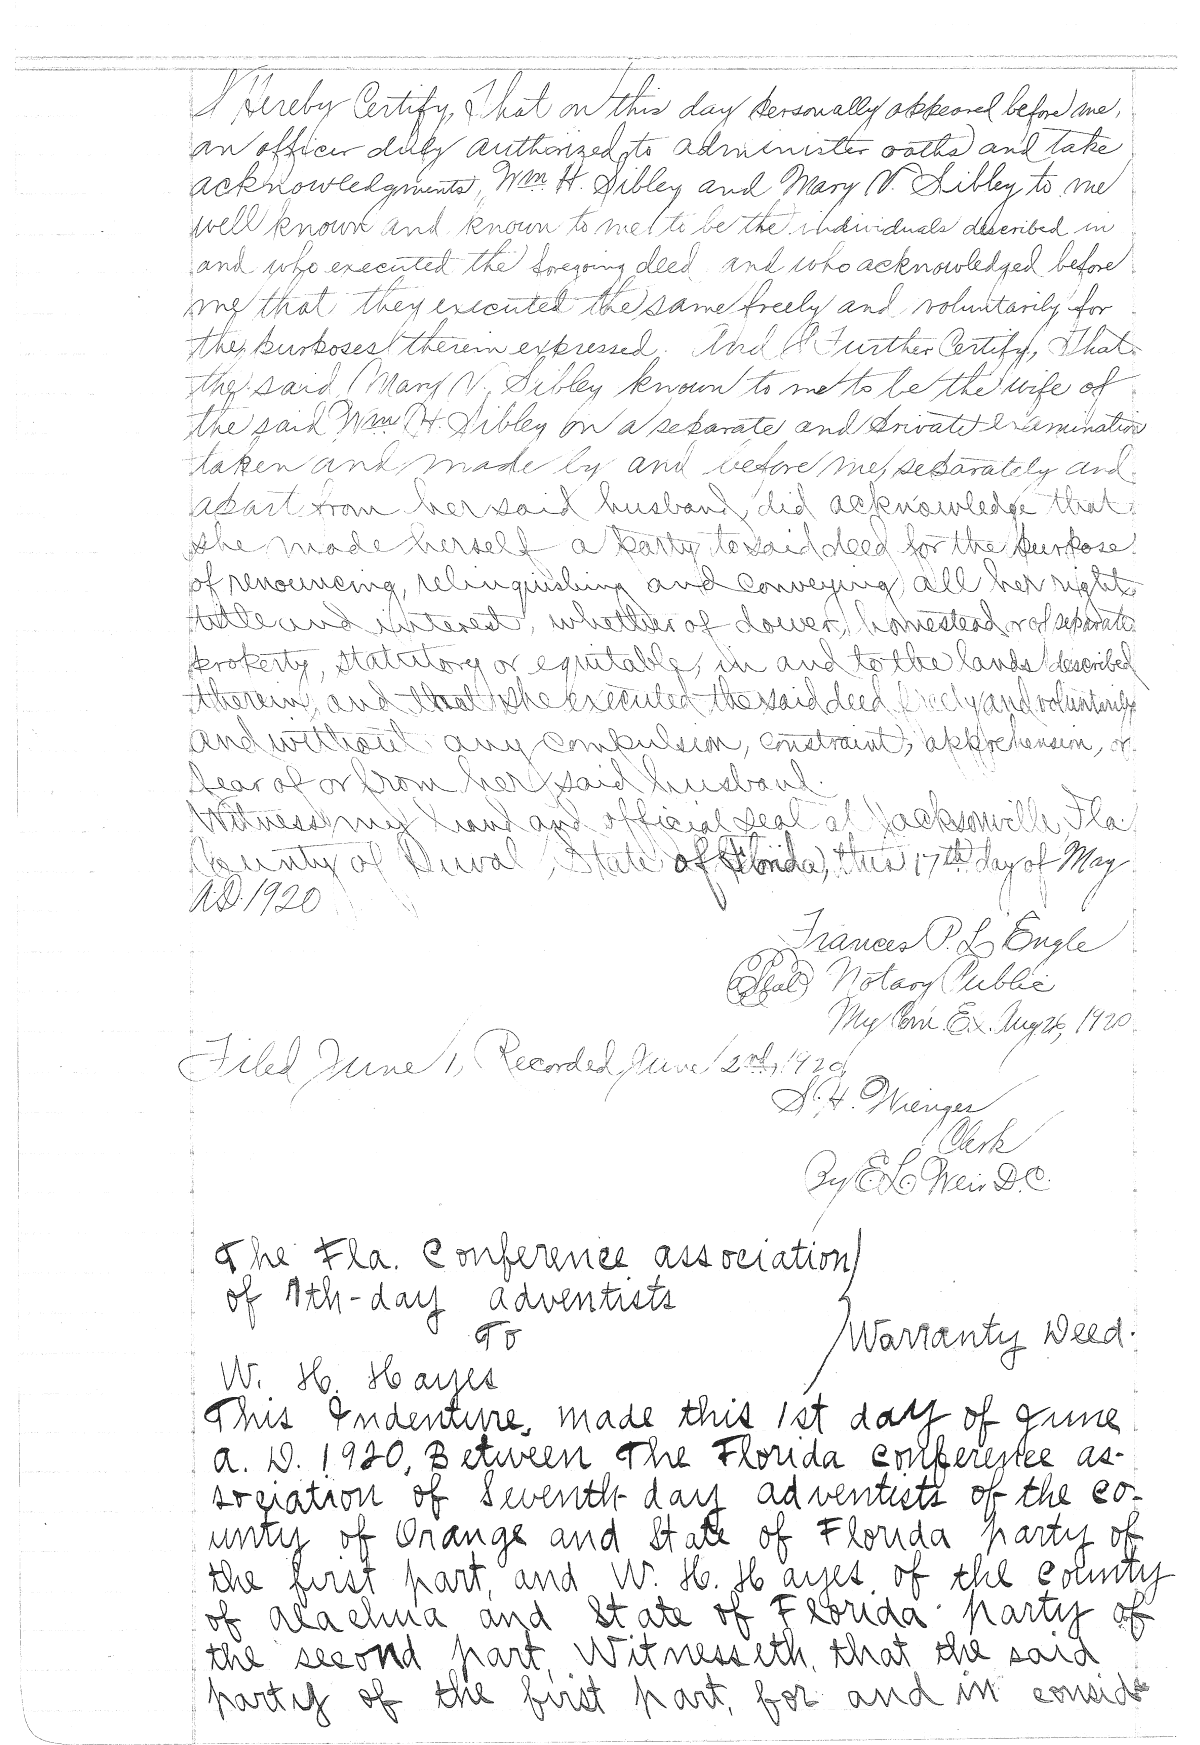 I Hereby Certify, That on this day personally appeared before me,
an officer duly authorized to administer oaths and take
acknowledgments, Wm H. Sibley and Mary V. Sibley to me
well known and known to me to be the individuals described in
and who executed the foregoing deed and who acknowledged before
me that they executed the same freely and voluntarily for
the purposes therein expressed. And I Further Certify, That
the said Mary V. Sibley known to me to be the wife of
the said Wm H. Sibley on a separate and private examination
taken and made by and before me, separately and
apart from her said husband, did acknowledge that
she made herself a party to said deed for the purpose
of renouncing, relinquishing and conveying all her right
title and interest, whether of dower, homestead or of separate
property, statutory or equitable, in and to the lands described
therein, and that she executed the said deed freely and voluntarily
and without any compulsion, constraint, apprehension, or
fear of or from her said husband.
Witness my hand and official seal at Jacksonville, Fla.
County of Duval, State of Florida, this 17th day of May
A.D. 1920
Frances P. L Engle
(Seal) Notary Public
My Com. Ex. Aug 26, 1920
Filed June 1, Recorded June 2nd, 1920
S. H. Wienges
Clerk
By E L Weir D.C.
The Fla. Conference association
of 7th-day adventists
To
Warranty Deed.
W. H. Hayes
This Indenture, made this 1st day of June
a. D. 1920, Between The Florida conference as-
sociation of Seventh-day adventists of the co-
unty of Orange and State of Florida party of
the first part, and W. H. Hayes of the county
of alachua and State of Florida party of
the second part, Witnesseth, that the said
party of the first part, for and in consid-